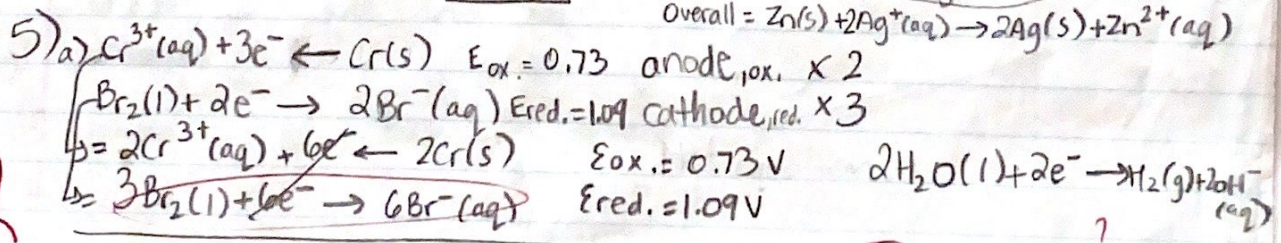 Overall = Zn(s)+2Ag⁺(aq)→2Ag(s)+Zn²⁺(aq)
5) a) Cr³⁺(aq)+3e⁻ ← Cr(s) Eox.=0.73 anode, ox. x2
Br₂(l)+2e⁻ → 2Br⁻(aq) Ered.=1.09 cathode, red. x3
↳= 2Cr³⁺(aq)+6e⁻ ← 2Cr(s) Eox.=0.73V
2H₂O(l)+2e⁻→H₂(g)+2OH⁻(aq)
↳= 3Br₂(l)+6e⁻ → 6Br⁻(aq) Ered.=1.09V
?